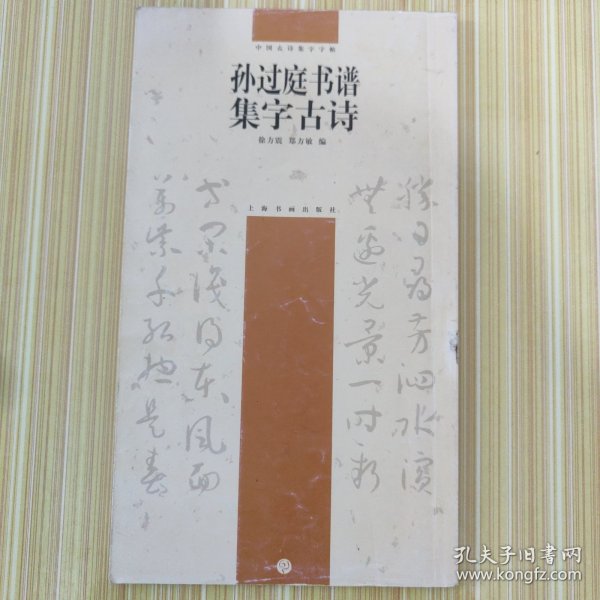 中国古诗集字字帖
孙过庭书谱
集字古诗
徐方震 郑方敏 编
上海书画出版社
胜日寻芳泗水滨
无边光景一时新
等闲识得东风面
万紫千红总是春
孔夫子旧书网
www.kongfz.com